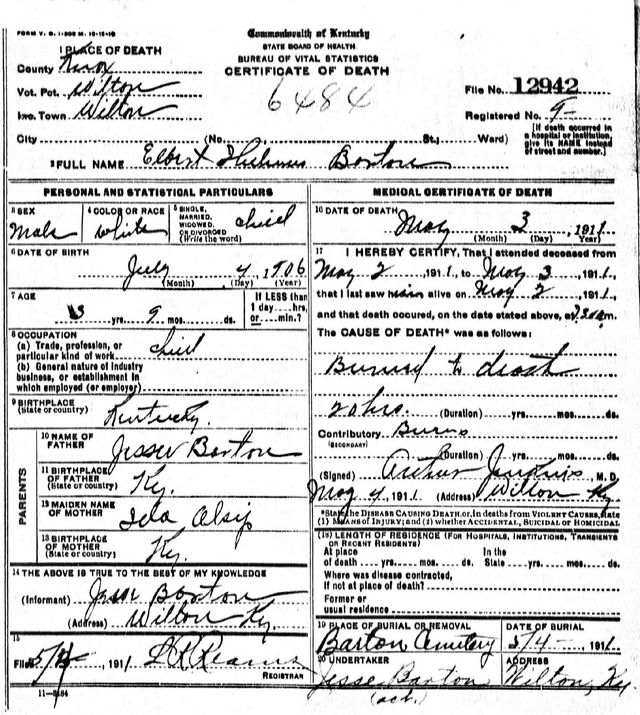 FORM V. S. 1-200 M. 10-15-10
Commonwealth of Kentucky
STATE BOARD OF HEALTH
BUREAU OF VITAL STATISTICS
CERTIFICATE OF DEATH
1 PLACE OF DEATH
County Knox
Vot. Pct. Wilton
Inc. Town Wilton
6484
File No. 12942
Registered No. 9-
City (No. St.; Ward)
[If death occurred in a hospital or institution, give its NAME instead of street and number.]
2 FULL NAME Elbert Barton
PERSONAL AND STATISTICAL PARTICULARS
3 SEX
Male
4 COLOR OR RACE
White
5 SINGLE, MARRIED, WIDOWED, OR DIVORCED (Write the word)
child
6 DATE OF BIRTH
July 4, 1906
(Month) (Day) (Year)
7 AGE
yrs. 9 mos. ds.
If LESS than 1 day....hrs. or....min.?
8 OCCUPATION
(a) Trade, profession, or particular kind of work child
(b) General nature of industry business, or establishment in which employed (or employer)
9 BIRTHPLACE
(State or country)
Kentucky.
PARENTS
10 NAME OF FATHER
Jesse Barton
11 BIRTHPLACE OF FATHER
(State or country)
Ky.
12 MAIDEN NAME OF MOTHER
Ida Alsip
13 BIRTHPLACE OF MOTHER
(State or country)
Ky.
14 THE ABOVE IS TRUE TO THE BEST OF MY KNOWLEDGE
(Informant) Jesse Barton
(Address) Wilton Ky
15
Filed 5/4- 191 1 L R Reams
REGISTRAR
11-3184
MEDICAL CERTIFICATE OF DEATH
16 DATE OF DEATH
May 3, 1911
(Month) (Day) (Year)
17 I HEREBY CERTIFY, That I attended deceased from
May 2 1911, to May 3 1911,
that I last saw him alive on May 2 1911,
and that death occured, on the date stated above, at m.
The CAUSE OF DEATH* was as follows:
Burned to death
20 hrs. (Duration) yrs. mos. ds.
Contributory Burns
(SECONDARY)
(Duration) yrs. mos. ds.
(Signed) Arthur Jenkins, M. D.
May 4, 1911 (Address) Wilton Ky.
*State the DISEASE CAUSING DEATH, or, in deaths from VIOLENT CAUSES, state (1) MEANS OF INJURY; and (2) whether ACCIDENTAL, SUICIDAL OR HOMICIDAL
(18) LENGTH OF RESIDENCE (FOR HOSPITALS, INSTITUTIONS, TRANSIENTS OR RECENT RESIDENTS)
At place of death yrs. mos. ds.
In the State yrs. mos. ds.
Where was disease contracted, If not at place of death?
Former or usual residence
19 PLACE OF BURIAL OR REMOVAL
Barton Cemetery
DATE OF BURIAL
5/4- 1911
20 UNDERTAKER
Jesse Barton
(act.)
ADDRESS
Wilton, Ky.